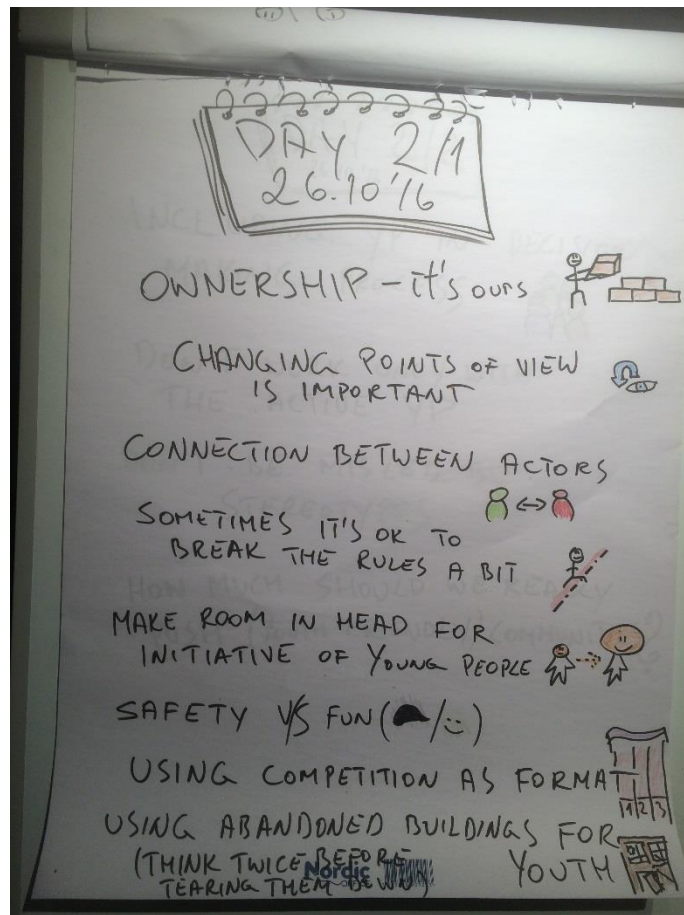 DAY 2/1
26.10'16
OWNERSHIP - it's ours
CHANGING POINTS OF VIEW
IS IMPORTANT
CONNECTION BETWEEN ACTORS
SOMETIMES IT'S OK TO
BREAK THE RULES A BIT
MAKE ROOM IN HEAD FOR
INITIATIVE OF YOUNG PEOPLE
SAFETY V/S FUN (/)
USING COMPETITION AS FORMAT
1 2 3
USING ABANDONED BUILDINGS FOR
YOUTH
(THINK TWICE BEFORE
TEARING THEM DOWN)
Nordic